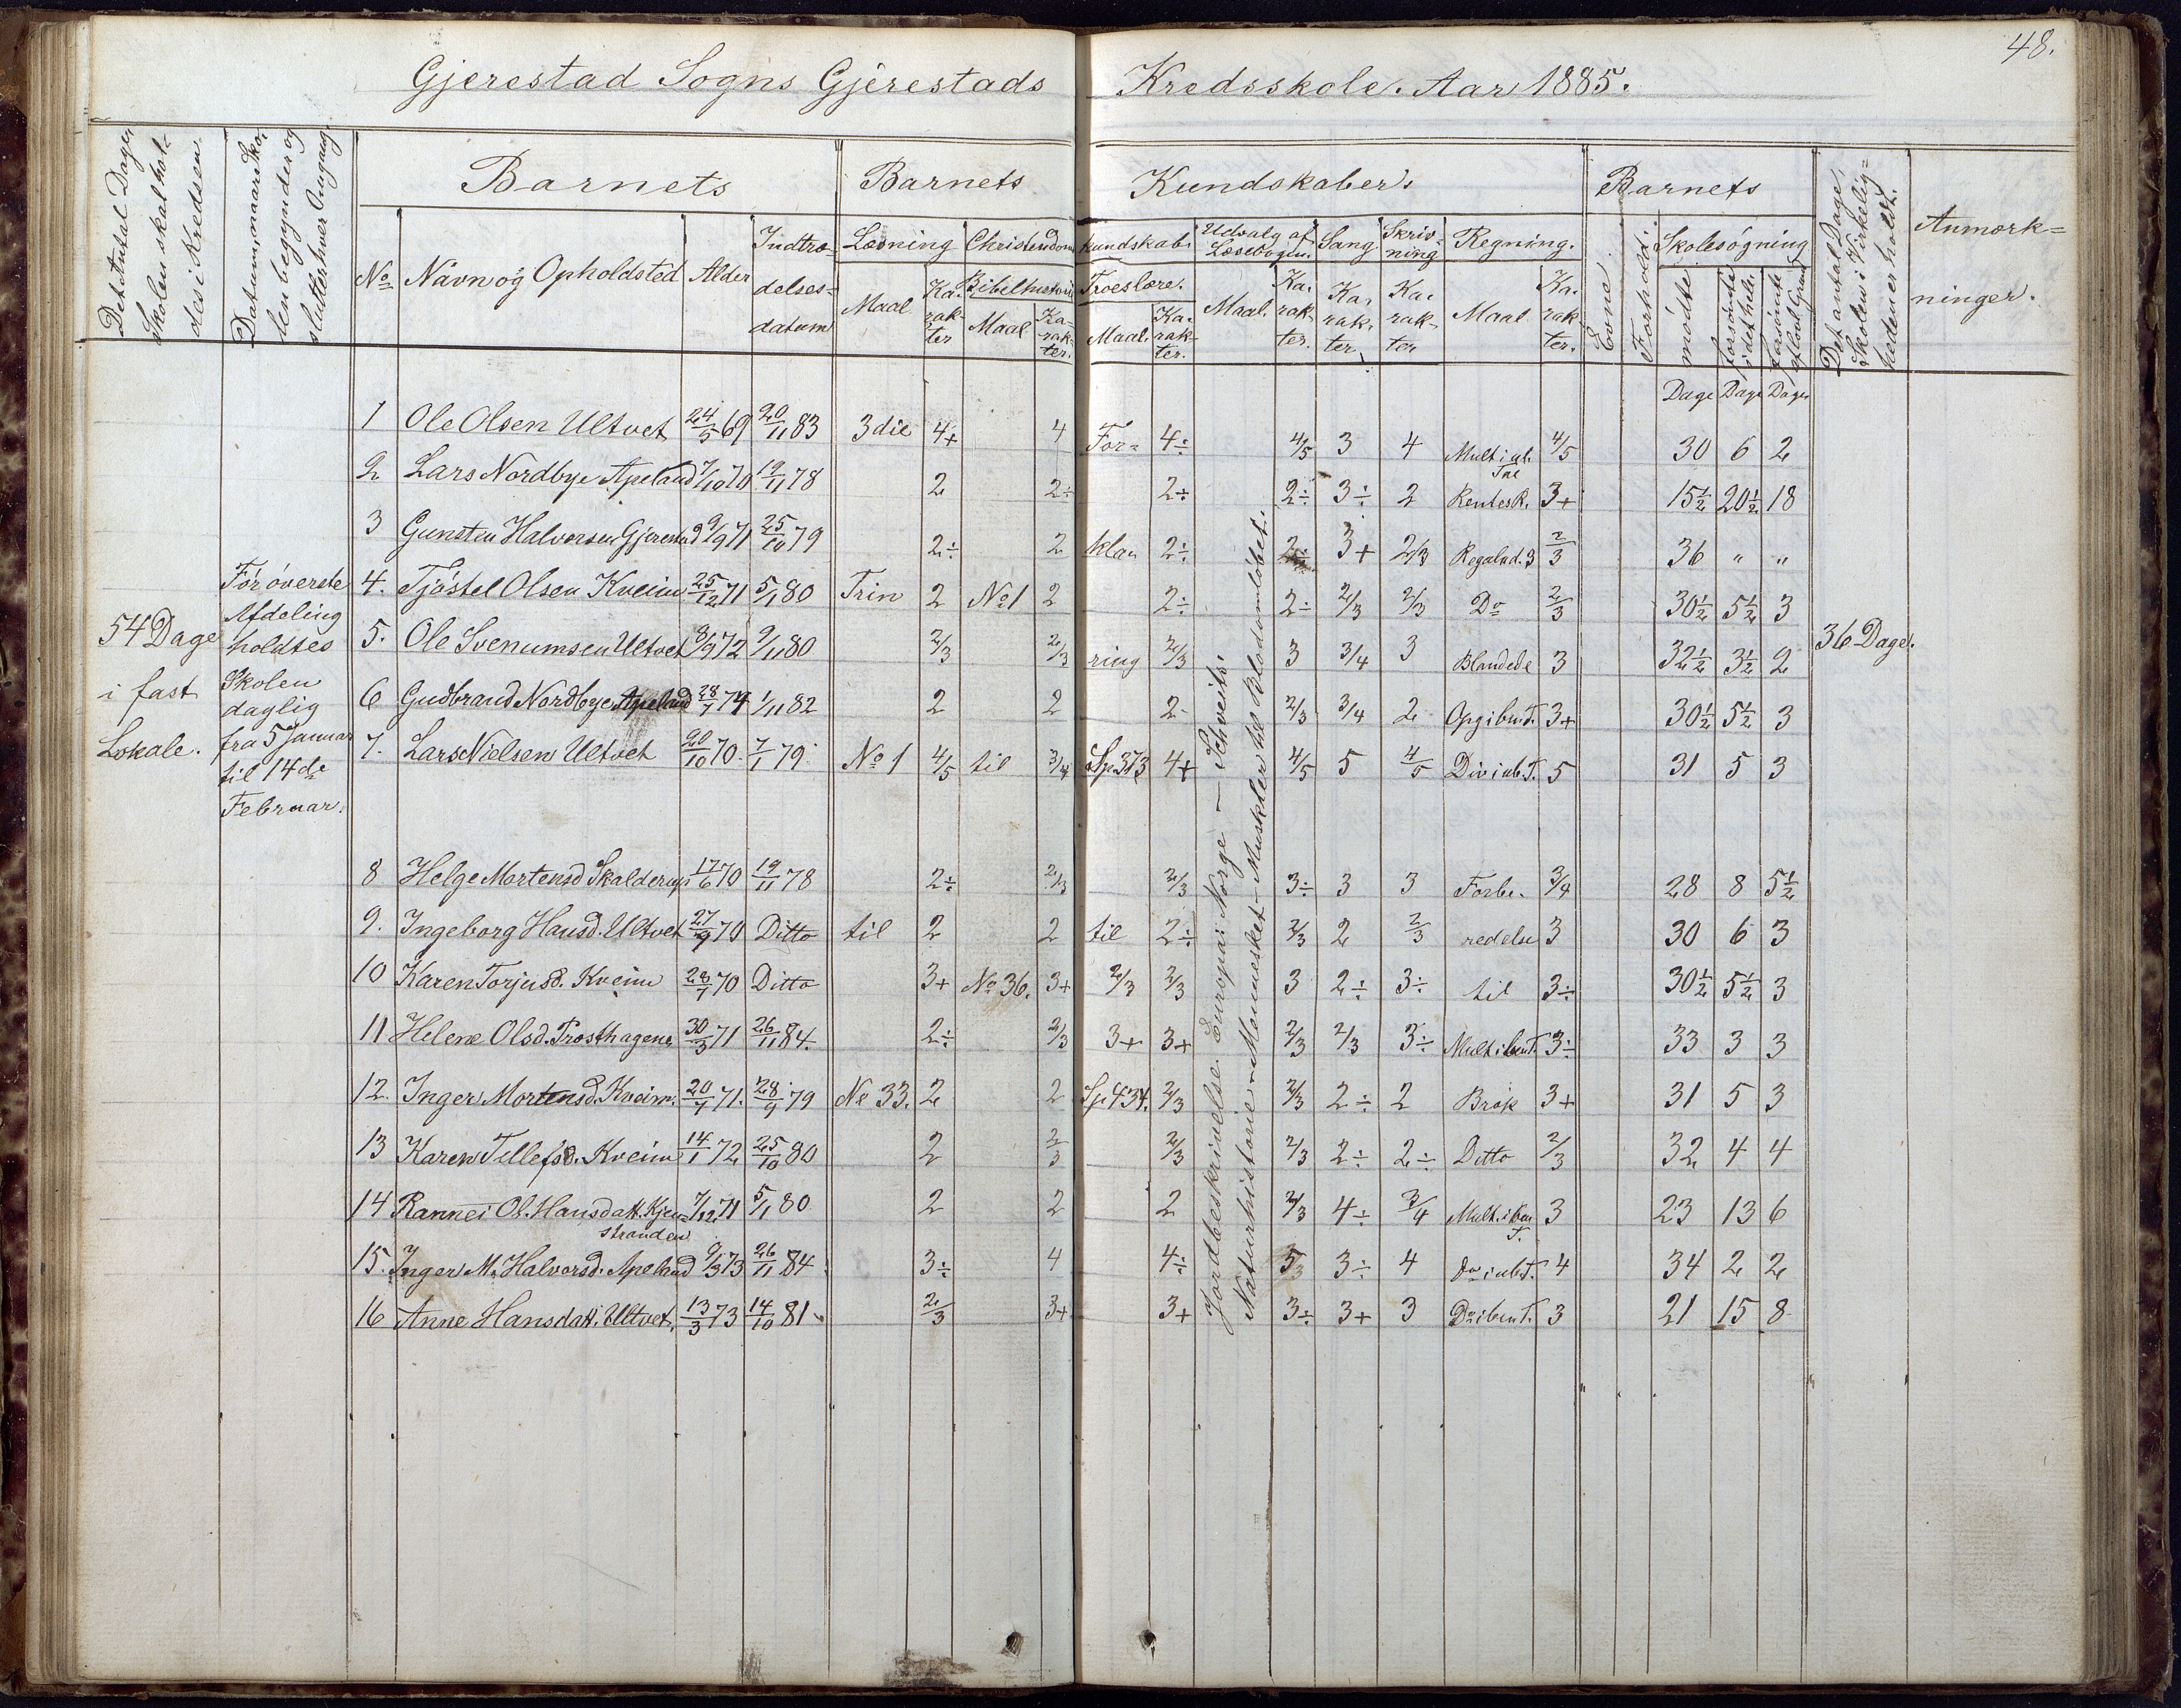 48.
Gjerestad Sogns Gjerestads Kredsskole. Aar 1885.
Det Antal Dage, Skolen skal holdes i Kredsen.
Datum, naar Skolen begynder og slutter hver Omgang.
Barnets
Barnets Kundskaber.
Barnets
Det antal Dage, Skolen i Virkeligheden er holdt.
Anmærkninger.
No Navn og Opholdsted Alder Indtrædelsesdatum
Læsning Maal Karakter
Christendomskundskab. Bibelhistorie Maal Karakter. Troeslære. Maal. Karakter.
Udvalg af Læsebogen. Maal. Karakter.
Sang. Karakter
Skrivning Karakter
Regning. Maal Karakter.
Evne. Forhold.
Skolesøgning mødte forsømte i det hele forsømte uden lovl. Grund
Dage Dage Dage
54 Dage i fast Lokale.
For øverste Afdeling holdtes Skolen daglig fra 5 Januar til 14de Februar.
1 Ole Olsen Ultvet 24/5 69 20/11 83 3die 4+ 4 For= 4÷ 4/5 3 4 Mult i ub. Tal 4/5 30 6 2
2 Lars Nordbye Apeland 7/10 70 19/11 78 2 2÷ 2÷ 2÷ 3÷ 2 Rentesk. 3+ 15½ 20½ 18
3 Gunsten Halvorsen Gjerestad 9/9 71 25/10 79 2÷ 2 klar 2÷ 2÷ 3+ 2/3 Regulad. 3 2/3 36 " "
4. Tjøstel Olsen Kveim 25/12 71 5/1 80 Trin 2 No 1 2 2÷ 2÷ 2/3 2/3 Do 2/3 30½ 5½ 3
5. Ole Svenumsen Ultvet 8/9 72 9/11 80 2/3 2/3 ring 2/3 3 3/4 3 Blandede 3 32½ 3½ 2
36 Dage.
6 Gudbrand Nordbye Apeland 28/7 74 1/11 82 2 2 2 2/3 3/4 2 Opg i ben T. 3+ 30½ 5½ 3
7. Lars Nielsen Ultvet 20/10 70. 7/1 79. No 1 4/5 til 3/4 Sp. 373 4+ 4/5 5 4/5 Div i ub. T. 5 31 5 3
8 Helge Mortensd Skalderup 17/6 70 19/11 78 2÷ 2/3 2/3 3÷ 3 3 Forbe- 3/4 28 8 5½
9. Ingeborg Hansd. Ultvet 27/9 70 Ditto til 2 2 til 2÷ 2/3 2 2/3 redelse 3 30 6 3
10 Karen Torjusd. Kveim 28/7 70 Ditto 3+ No 36. 3+ 2/3 2/3 3 2÷ 3÷ til 3÷ 30½ 5½ 3
11 Helene Olsd. Trosthagene 30/3 71 26/11 84. 2÷ 2/3 3+ 3+ 2/3 2/3 3÷ Mult i ben T. 3÷ 33 3 3
12. Inger Mortensd. Kveim. 20/7 71. 28/9 79 No 33. 2 2 Sp. 434. 2/3 2/3 2÷ 2 Brøk 3+ 31 5 3
13 Karen Tellefsd. Kveim 14/1 72 25/10 80 2 2/3 2/3 2/3 2÷ 2÷ Ditto 2/3 32 4 4
14 Rannei Ol. Hansdatt. Kjen= stranden 7/12 71 5/1 80 2 2 2 2/3 4÷ 3/4 Mult. i ben T. 3 23 13 6
15. Inger M. Halvorsd. Apeland 9/3 73 26/11 84. 3÷ 4 4÷ 3 3÷ 4 Do i ub T. 4 34 2 2
16 Anne Hansdatt. Ultvet. 13/3 73 14/10 81. 2/3 3+ 3+ 3÷ 3+ 3 Do i ben T. 3 21 15 8
Jordbeskrivelse. Europa: Norge – Schveits.
Naturhistorie. Mennesket – Muskler hos Blodomløbet.